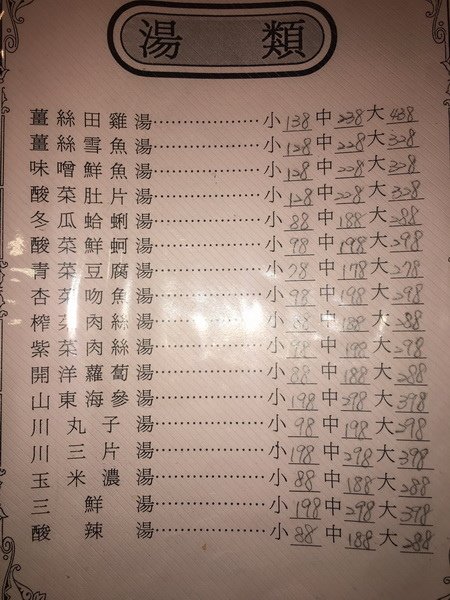 湯類
薑絲田雞湯 小 138 中 238 大 438
薑絲雪魚湯 小 128 中 228 大 328
味噌鮮魚湯 小 128 中 228 大 328
酸菜肚片湯 小 128 中 228 大 328
冬瓜蛤蜊湯 小 88 中 188 大 288
酸菜鮮蚵湯 小 98 中 198 大 298
青菜豆腐湯 小 78 中 178 大 278
杏菜吻魚湯 小 98 中 198 大 298
榨菜肉絲湯 小 88 中 188 大 288
紫菜肉絲湯 小 98 中 198 大 298
開洋蘿蔔湯 小 88 中 188 大 288
山東海參湯 小 198 中 298 大 398
川丸子湯 小 98 中 198 大 298
川三片湯 小 198 中 298 大 398
玉米濃湯 小 88 中 188 大 288
三鮮湯 小 198 中 298 大 398
酸辣湯 小 88 中 188 大 288